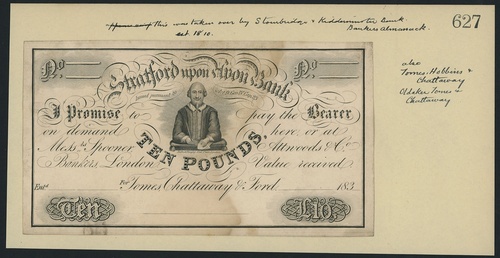 this was taken over by Stourbridge & Kidderminster Bank
est. 1810. Bankers Almanack.
627
also
Tomes, Hobbins &
Chattaway
Oldaker Tomes &
Chattaway
No No
Stratford upon Avon Bank
I Promise to pay the Bearer
on demand here, or at
Messrs. Spooner Attwoods & Co.
Bankers, London Value received
TEN POUNDS
Entd.
For Tomes, Chattaway & Ford 183
Ten £10